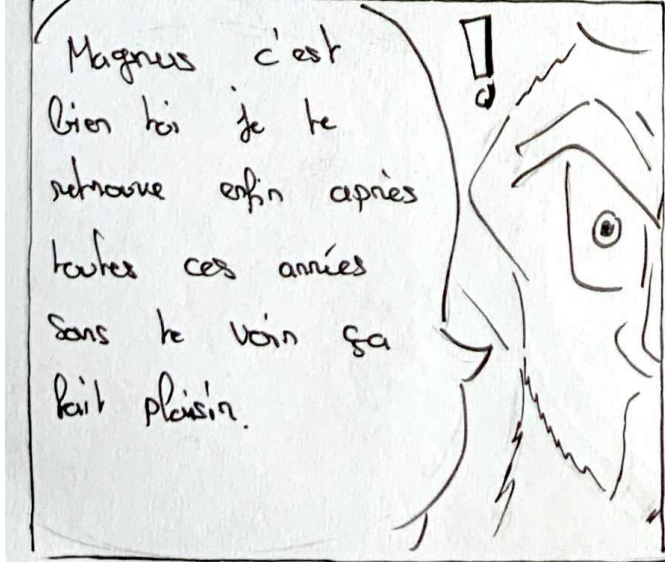 Magnus c'est
bien toi je te
retrouve enfin après
toutes ces années
sans te voir ça
fait plaisir.
!